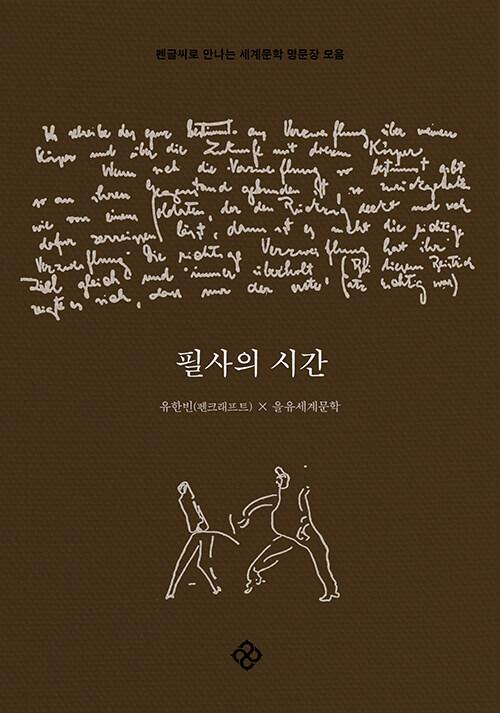 펜글씨로 만나는 세계문학 명문장 모음
Ich schreibe das ganz bestimmt aus Verzweiflung über meinen
Körper und über die Zukunft mit diesem Körper
Wenn sich die Verzweiflung so bestimmt gibt
so an ihren Gegenstand gebunden ist, so zurückgehalten
wie von einem Soldaten, der den Rückzug deckt und sich
dafür zerreissen lässt, dann ist es nicht die richtige
Verzweiflung Die richtige Verzweiflung hat ihr
Ziel gleich und immer überholt, (Bei diesem Beistrich
zeigte es sich, dass nur der erste Satz richtig war)
필사의 시간
유한빈(펜크래프트) × 을유세계문학